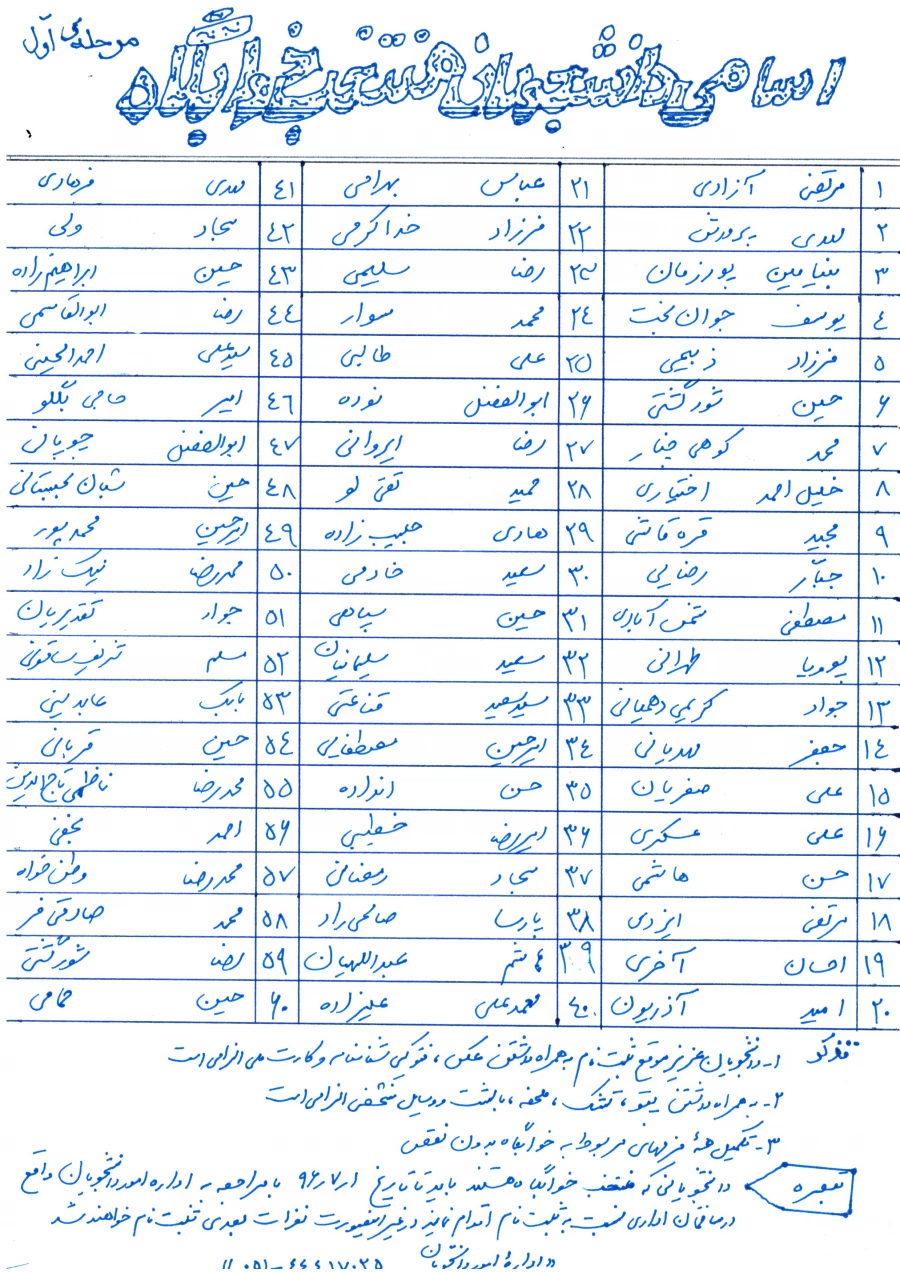 مرحله‌ی اوّل
اسامی دانشجویان منتخب خوابگاه
۱ مرتضی آزادی ۲۱ عباس بهرامی ۴۱ مهدی فرهادی
۲ مهدی پرورش ۲۲ فرزاد خداکرمی ۴۲ سجاد ولی
۳ بنیامین پورزمان ۲۳ رضا سلیمی ۴۳ حسین ابراهیم زاده
۴ یوسف جوان بخت ۲۴ محمد سوار ۴۴ رضا ابوالقاسمی
۵ فرزاد ذبیحی ۲۵ علی طالبی ۴۵ سیدعلی احمدالحسینی
۶ حسین شورگشتی ۲۶ ابوالفضل نوده ۴۶ امیر حاجی بگللو
۷ محمد کوهی جبار ۲۷ رضا ایروانی ۴۷ ابوالفضل چوپانی
۸ خلیل احمد اختیاری ۲۸ حمید تقی لو ۴۸ حسین شبان
۹ مجید قره قاشی ۲۹ هادی حبیب زاده ۴۹ امیرحسین محمدپور
۱۰ جبّار رضایی ۳۰ سعید خادمی ۵۰ محمدرضا نیک زاد
۱۱ مصطفی شمس آبادی ۳۱ حسین سپاهی ۵۱ جواد تقدیریان
۱۲ پوویا طهرانی ۳۲ سعید سلیمانیان ۵۲ مسلم شریف ساقونی
۱۳ جواد کریمی دهبانی ۳۳ سیدسعید قناعتی ۵۳ بابک عابدینی
۱۴ جعفر مهدیانی ۳۴ امیرحسین مصطفایی ۵۴ حسین قربانی
۱۵ علی صفریان ۳۵ حسن اندازه ۵۵ محمدرضا ناظمی تاج الدین
۱۶ علی عسکری ۳۶ امیررضا خطیبی ۵۶ احمد نجفی
۱۷ حسن هاشمی ۳۷ سجاد رمضانی ۵۷ محمدرضا وطن خواه
۱۸ مرتضی ایزدی ۳۸ پارسا صالحی راد ۵۸ محمد صادقی فر
۱۹ احسان آخری ۳۹ هاشم عبداللهیان ۵۹ رضا شورگشتی
۲۰ امید آذریون ۴۰ محمدعلی علیزاده ۶۰ حسین حمامی
تذکر ۱- دانشجویان عزیز موقع ثبت نام به همراه داشتن عکس، فتوکپی شناسنامه و کارت ملی الزامی است
۲- به همراه داشتن پتو، تشک، ملحفه، بالشت و وسایل شخصی الزامی است
۳- تکمیل همهٔ فرمهای مربوط به خوابگاه بدون نقص
تبصره دانشجویانی که منتخب خوابگاه هستند باید تا تاریخ ۹۶/۷/۱ با مراجعه به اداره امور دانشجویان واقع
در ساختمان اداری نسبت به ثبت نام اقدام نمایند در غیر اینصورت نفرات بعدی ثبت نام خواهند شد
« اداره امور دانشجویان ۴۴۴۱۷۰۲۵-۰۵۱ »